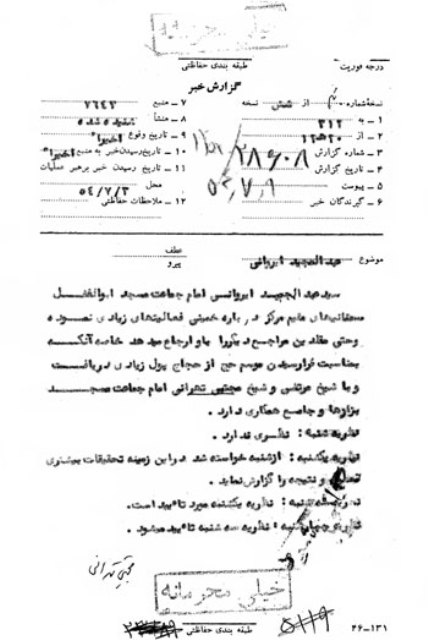 خیلی محرمانه
درجه فوریت
طبقه بندی حفاظتی
گزارش خبر
نسخه شماره ۳ از شش نسخه
۱ ـ به ۳۱۲
۲ ـ از ۲۰ ه ۱۲
۳ ـ شماره گزارش ۲۸۶۰۸
۴ ـ تاریخ گزارش ۵۴/۷/۹
۵ ـ پیوست
۶ ـ گیرندگان خبر
۷ ـ منبع ۷۶۴۳
۸ ـ منشأ شنیده شده
۹ ـ تاریخ وقوع اخیرا"
۱۰ ـ تاریخ رسیدن خبر به منبع اخیرا"
۱۱ ـ تاریخ رسیدن خبر برهبر عملیات
محل ۵۴/۷/۳
۱۲ ـ ملاحظات حفاظتی
موضوع عبدالمجید ایروانی
عطف
پیرو
سیدعبدالمجید ایروانی امام جماعت مسجد ابوالفضل
مقیم مرکز درباره خمینی فعالیتهای زیادی نموده
وحتی مقلدین مراجع دیگررا باو ارجاع میدهد خاصه آنکه
بمناسبت فرارسیدن موسم حج از حجاج پول زیادی دریافت
و با شیخ مرتضی و شیخ مجتبی تهرانی امام جماعت مسجد
بزازها و جامع همکاری دارد .
نظریه شنبه : نظری ندارد .
نظریه یکشنبه : ازشنبه خواسته شد دراین زمینه تحقیقات بیشتری
و نتیجه را گزارش نماید .
نظریه سه شنبه : نظریه یکشنبه مورد تائید است.
نظریه چهارشنبه : نظریه سه شنبه تائید میشود .
مجتبی تهرانی
خیلی محرمانه
طبقه بندی حفاظتی
۴۶-۱۳۱